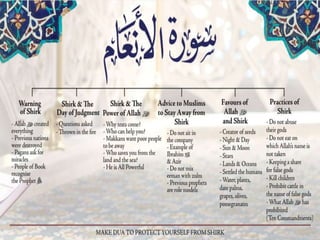 سورة الأنعام
Warning
of Shirk
- Allah ﷻ created
everything
- Previous nations
were destroyed
- Pagans ask for
miracles
- People of Book
recognise
the Prophet ﷺ
Shirk & The
Day of Judgment
- Questions asked
- Thrown in the fire
Shirk & The
Power of Allah ﷻ
- Why rasts come?
- Who can help you?
- Makkans want poor people
to be away
- Who saves you from the
land and the sea?
- He is All Powerful
Advice to Muslims
to Stay Away from
Shirk
- Do not sit in
the company
- Example of
Ibrahim
& Azir
- Do not mix
eeman with zulm
- Previous prophets
are role models
Favours of
Allah ﷻ
and Shirk
- Creator of seeds
- Night & Day
- Sun & Moon
- Stars
- Lands & Oceans
- Settled the humans
- Water, plants,
date palms,
grapes, olives,
pomegranates
Practices of
Shirk
- Do not abuse
their gods
- Do not eat on
which Allah's name is
not taken
- Keeping a share
for false gods
- Kill children
- Prohibit cattle in
the name of false gods
- What Allah ﷻ has
prohibited
(Ten Commandments)
MAKE DUA TO PROTECT YOURSELF FROM SHIRK